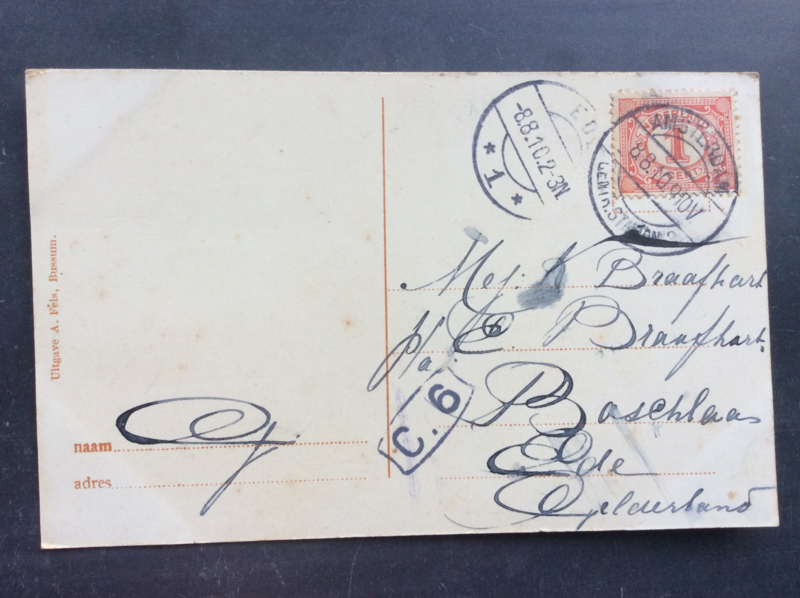 Uitgave A. Fels, Bussum.
naam
adres
* 1 *
-8.8.10.2-3N
ED
AMSTERDAM
8.8.10. 9-10V
CENTR. STATION 2
1
CENT
Mej. K Braafhart
p/a E. Braafhart.
Boschlaas
Ede
Gelderland
C. 6